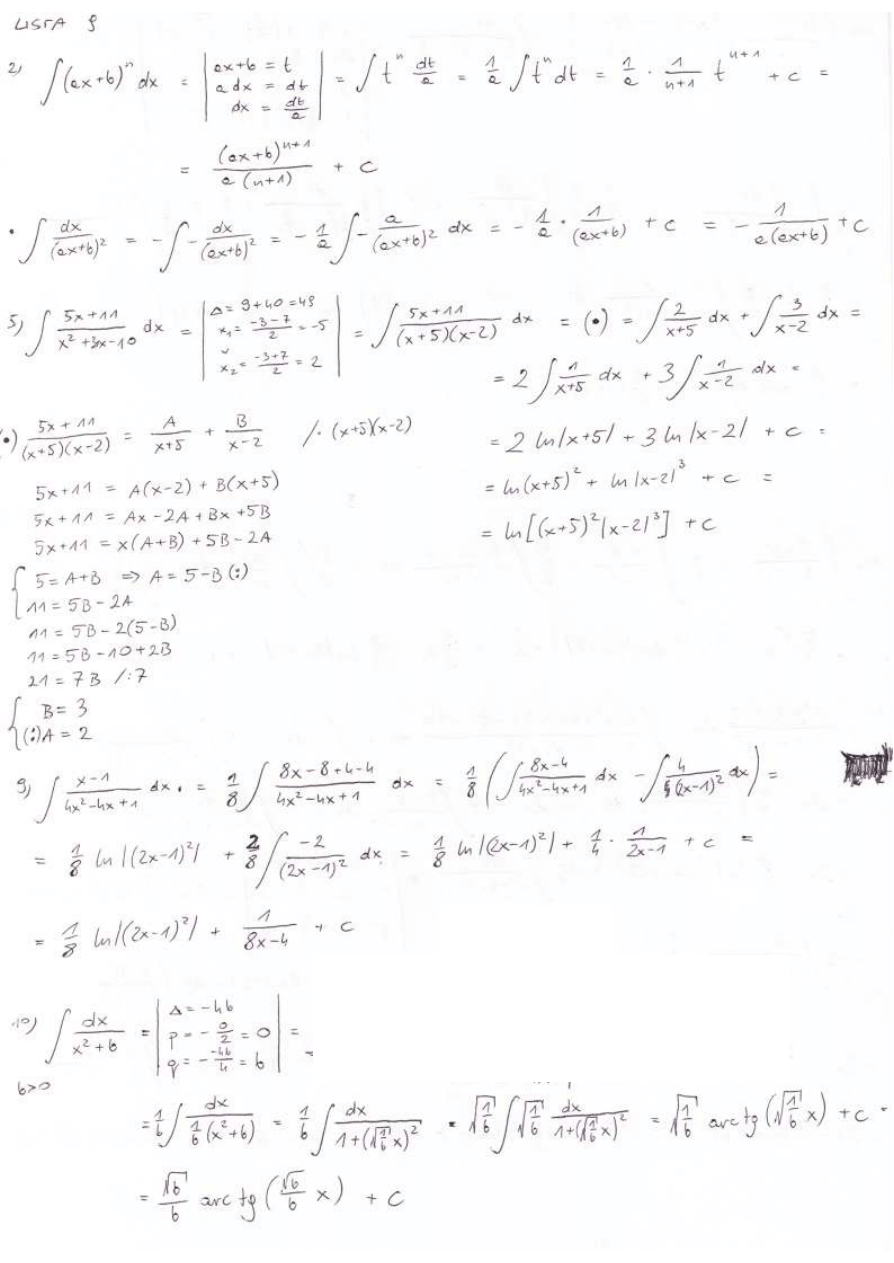 LISTA 9
2) ∫(ax+b)^n dx = | ax+b = t ; a dx = dt ; dx = dt/a | = ∫ t^n dt/a = 1/a ∫ t^n dt = 1/a · 1/(n+1) t^(n+1) + c =
= (ax+b)^(n+1) / (a(n+1)) + c
• ∫ dx/(ax+b)² = -∫ - dx/(ax+b)² = - 1/a ∫ - a/(ax+b)² dx = - 1/a · 1/(ax+b) + c = - 1/(a(ax+b)) + c
5) ∫ (5x+11)/(x²+3x-10) dx = | Δ = 9+40 = 49 ; x₁ = (-3-7)/2 = -5 ; x₂ = (-3+7)/2 = 2 | = ∫ (5x+11)/((x+5)(x-2)) dx = (•) = ∫ 2/(x+5) dx + ∫ 3/(x-2) dx =
= 2 ∫ 1/(x+5) dx + 3 ∫ 1/(x-2) dx =
= 2 ln|x+5| + 3 ln|x-2| + c =
= ln(x+5)² + ln|x-2|³ + c =
= ln[(x+5)²|x-2|³] + c
(•) (5x+11)/((x+5)(x-2)) = A/(x+5) + B/(x-2) /· (x+5)(x-2)
5x+11 = A(x-2) + B(x+5)
5x+11 = Ax - 2A + Bx + 5B
5x+11 = x(A+B) + 5B - 2A
{ 5 = A+B ⇒ A = 5-B (:)
11 = 5B - 2A
11 = 5B - 2(5-B)
11 = 5B - 10 + 2B
21 = 7B /:7
{ B = 3
(:) A = 2
9) ∫ (x-1)/(4x²-4x+1) dx = 1/8 ∫ (8x-8+4-4)/(4x²-4x+1) dx = 1/8 ( ∫ (8x-4)/(4x²-4x+1) dx - ∫ 4/(2x-1)² dx ) =
= 1/8 ln|(2x-1)²| + 2/8 ∫ -2/(2x-1)² dx = 1/8 ln|(2x-1)²| + 1/4 · 1/(2x-1) + c =
= 1/8 ln|(2x-1)²| + 1/(8x-4) + c
10) ∫ dx/(x²+b) = | Δ = -4b ; p = - 0/2 = 0 ; q = - -4b/4 = b | =
b>0
= 1/b ∫ dx/(1/b (x²+b)) = 1/b ∫ dx/(1+(√(1/b) x)²) = √(1/b) ∫ √(1/b) dx/(1+(√(1/b) x)²) = √(1/b) arc tg (√(1/b) x) + c =
= √b/b arc tg (√b/b x) + c